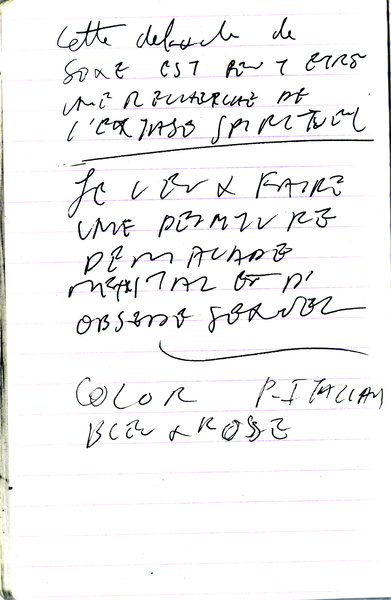 Cette debauche de
SEXE EST PEUT ETRE
UNE RECHERCHE DE
L'EXTASE SPIRITUEL
JE VEUX FAIRE
UNE PEINTURE
DE MALADE
MENTAL ET D'
OBSEDE SEXUEL
COLOR P-ITALIAN
BLEU & ROSE